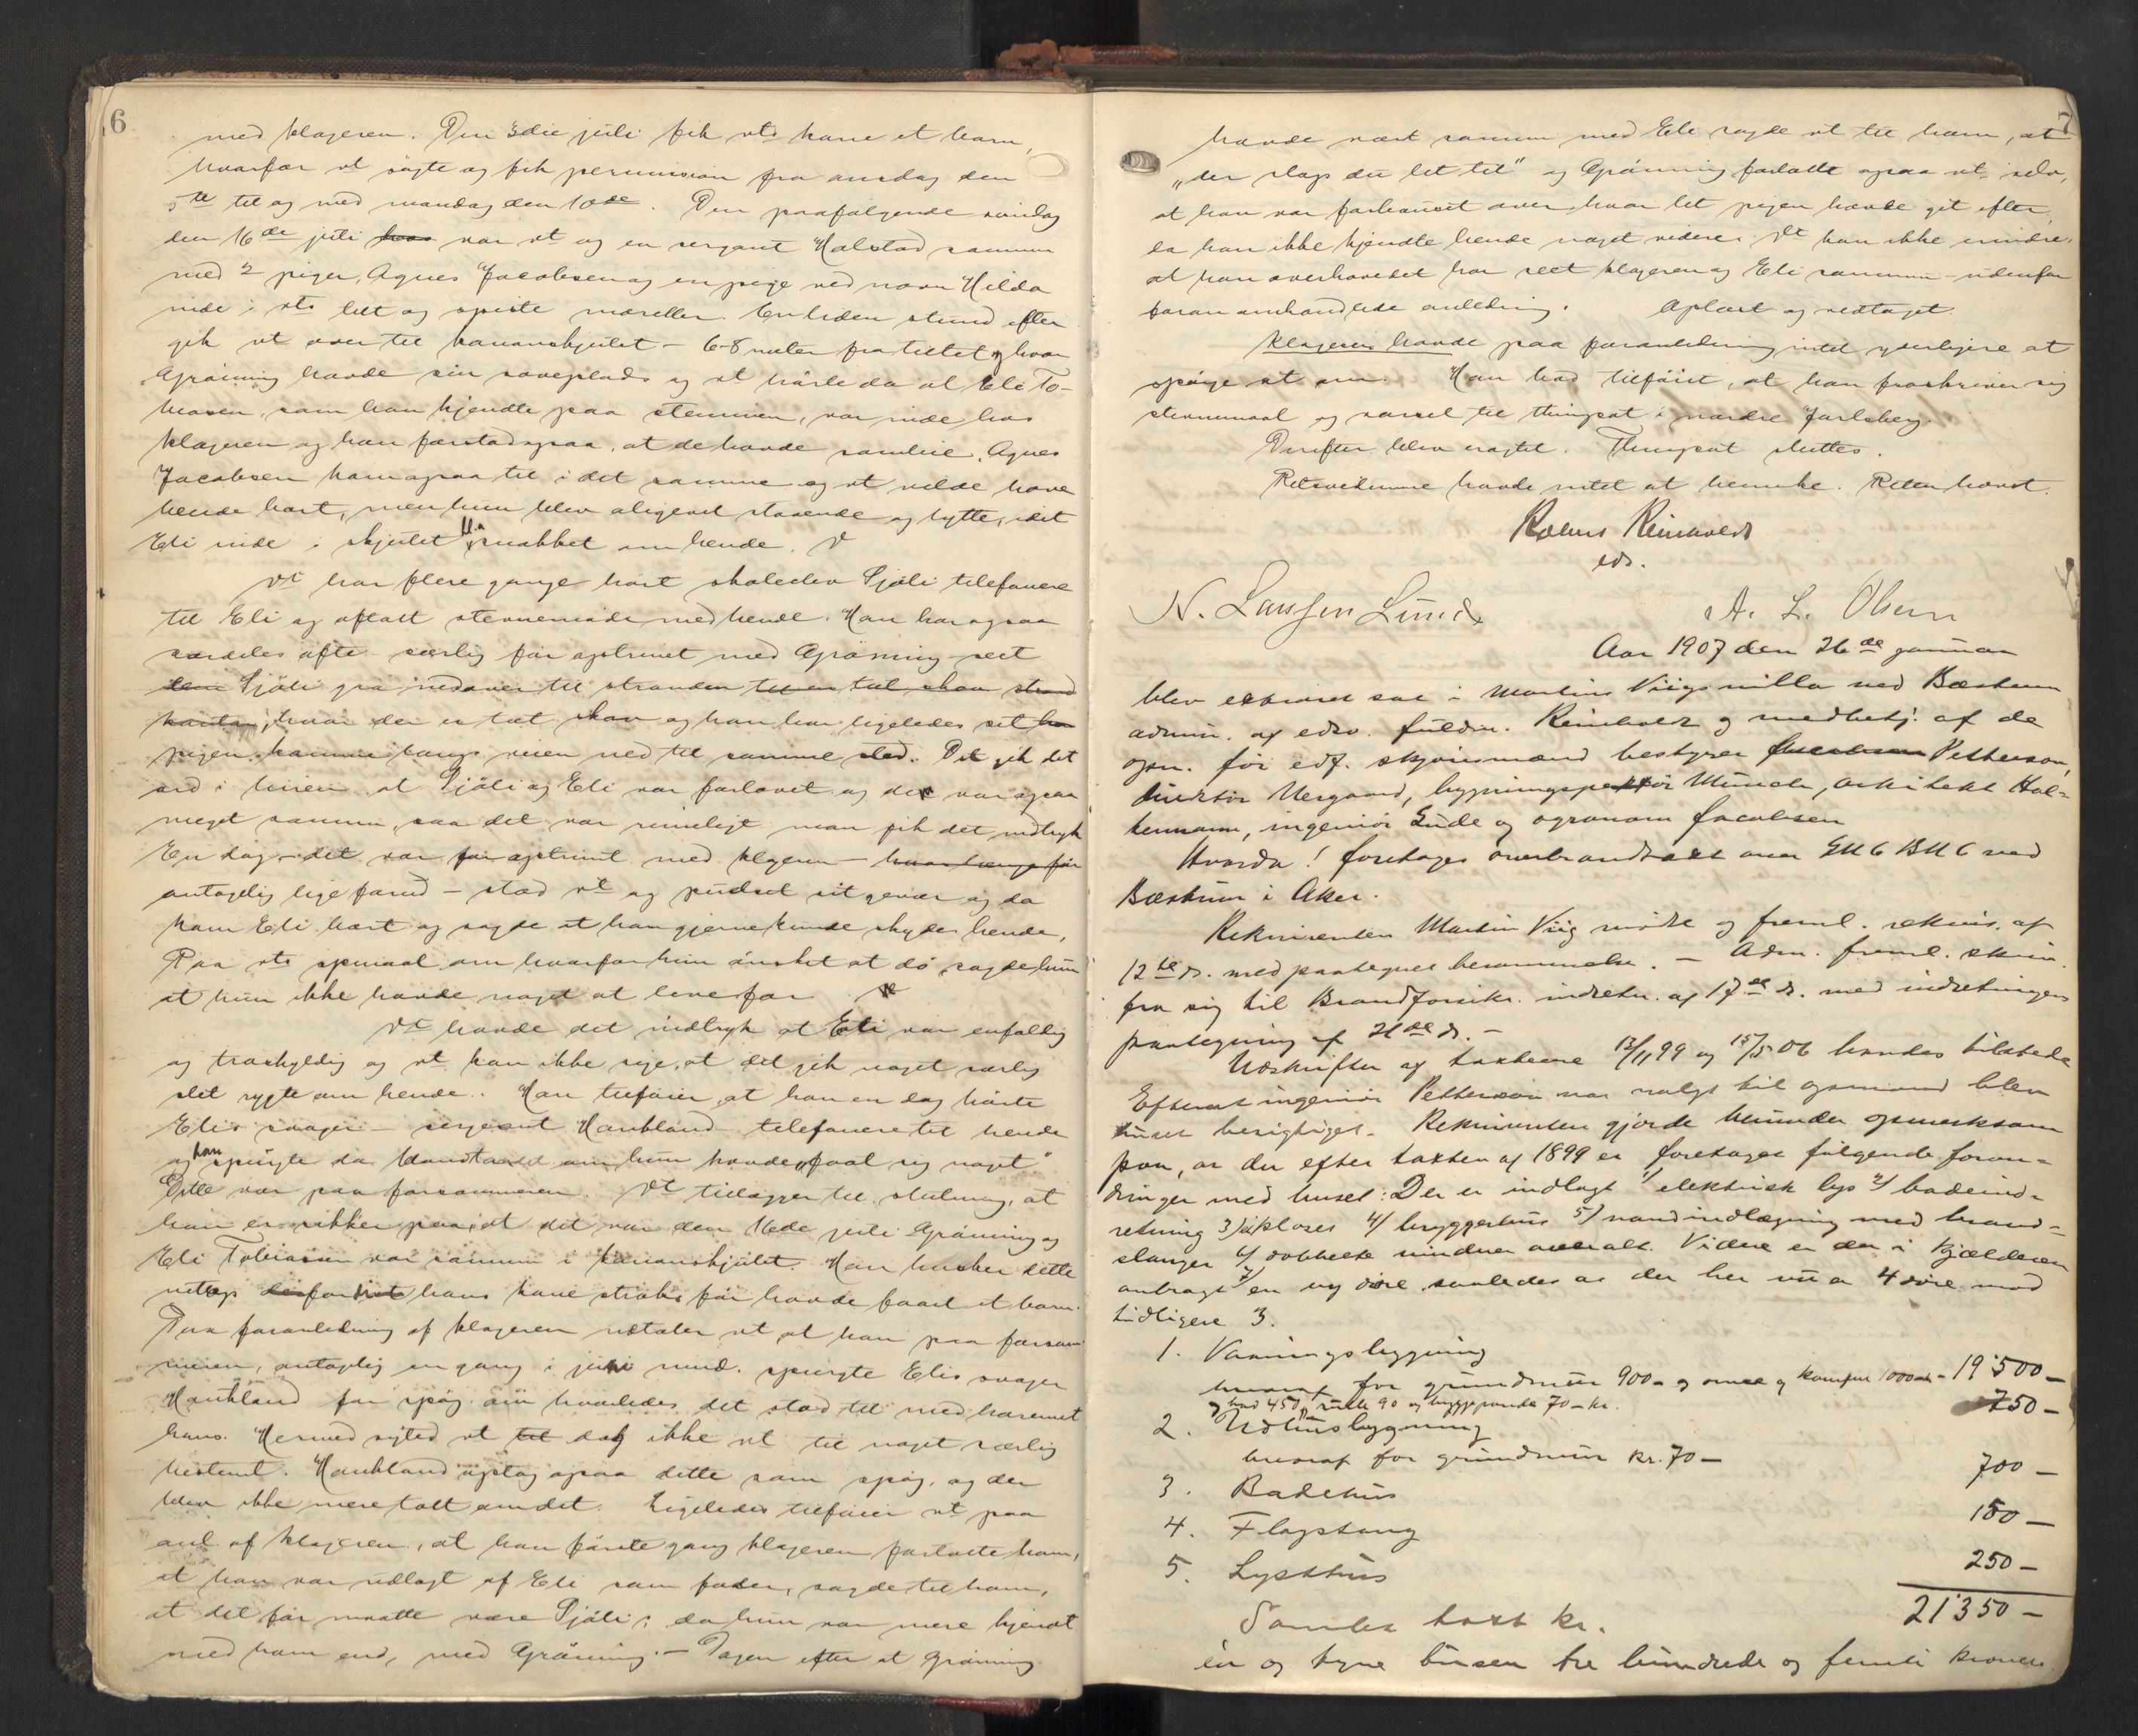 6
med klageren. Den 3die juli fik vts kone et barn,
hvorfor vt søgte og fik permission fra onsdag den
5te til og med mandag den 10de. Den paafølgende søndag
den 16de juli var vt og en sergant Halstad sammen
med 2 piger, Agnes Jacobsen og en pige ved navn Hilda
inde i vts telt og spiste moreller. En liden stund efter
gik vt over til kanonskjulet – 6-8 meter fra teltet og hvor
Grønning havde sin soveplads og vt hørte da at Eli To-
biasen, som han kjendte paa stemmen, var inde hos
klageren og han forstod ogsaa, at de havde samleie. Agnes
Jacobsen kom ogsaa til i det samme og vt vilde have
hende bort, men hun blev aligevel staaende og lytte, idet
Eli inde i skjulet snakket om hende.
Vt har flere gange hørt skoleelev Sjøli telefonere
til Eli og aftalt stevnemøde med hende. Han har ogsaa
særdeles ofte – særlig før optrinet med Grønning – seet
Sjøli gaa nedover til stranden til en tæt skov strand
hvor der er tæt skov og han har ligeledes set
pigen komme langs veien ned til samme sted. Det gik det
ord i leiren at Sjøli og Eli var forlovet og de var ogsaa
meget sammen, saa det var rimeligt man fik det indtryk
En dag – det var før optrinet med klageren – hvor længe før
antagelig lige forud – stod vt og pudset sit gevær og da
kom Eli bort og sagde at han gjerne kunde skyde hende,
Paa vts spørsmaal om hvorfor hun ønsket at dø sagde hun
at hun ikke havde noget at leve for
Vt havde det indtryk at Eli var enfoldig
og troskyldig og vt kan ikke sige, at det gik noget særlig
slet rygte om hende. Han tilføier, at han en dag hørte
Elis svoger – sergeant Haukland – telefonere til hende
og han spurgte da om hun havde "faat sig noget"
Dette var paa forsommeren. Vt tilføier til slutning, at
han er sikker paa, at det var den 16de juli Grønning og
Eli Tobiassen var sammen i kanonskjulet. Han husker dette
netop hans kone straks før havde faaet et barn.
Paa foranledning af klageren udtaler vt at han paa forsom-
meren, antagelig en gang i juni mnd. spurgte Elis svoger
Haukland for spøg om hvorledes det stod til med haremet
hans. Hermed sigted vt dog ikke til noget særlig
bestemt. Haukland optog ogsaa dette som spøg, og der
blev ikke mere talt om det. Ligeledes tilføier vt paa
anl af klageren, at han første gang klageren fortalte ham,
at han var udlagt af Eli som fader, sagde til ham,
at det før maatte være Sjøli, da hun var mere kjendt
med ham end med Grønning. – Dagen efter at Grønning
7
havde vært sammen med Eli sagde vt til ham, at
"der slap du let til" og Grønning fortalte ogsaa vt selv,
at han var forbauset over, hvor let pigen havde git efter,
da han ikke kjendte hende noget videre. Vt kan ikke erindre,
at han overhovedet har seet klageren og Eli sammen – udenfor
foran omhandlede anledning. Oplæst og vedtaget.
Klageren havde paa foranledning intet yderligere at
spørge vt om. Han bad tilføiet, at han fraskriver sig
stevnemaal og varsel til thingsvt i nordre Jarlsberg.
Derefter blev eragtet. Thingsvt sluttes.
Retsvidnerne havde intet at bemerke. Retten hævet.
Rolens Reinholdt
eds.
N. Laussen Lund A. L. Olsen
Aar 1907 den 26de januar
blev extraret sat i Martin Viigs villa ved Bæstum
admin. af edsv. fuldm. Reinholdt og medbetj. af de
opn. før edf. skjønsmænd bestyrer Petterson,
direktør Nergaard, bygningspektør Munch, arkitekt Hol-
kermann, ingeniør Gude og agronom Jacobsen
Hvorda! foretages overbrandtaxt over GN 6 BN 6 ved
Bæstum i Aker.
Rekvirenten Martin Viig mødte og freml. rekvis. af
12te ds. med paategnet berammelse. – Adm. freml. skriv.
fra sig til Brandforsikr. indretn. af 17de ds. med indretningens
paategning af 21de ds. –
Udskrifter af taxterne 13/11 99 og 15/5 06 havdes tilstede
Efterat ingeniør Petterson var valgt til opmand blev
huset besigtiget. Rekvirenten gjorde herunder opmerksom
paa, at der efter taxten af 1899 er foretaget følgende foran-
dringer med huset: Der er indlagt 1/ elektrisk lys 2/ badeind-
retning 3/ klosett 4/ bryggerhus 5/ vandindlægning med brand-
slanger 6/ dobbelte vinduer overalt. Videre er der i kjælderen
anbragt 7/ en ny dør saaledes at der her nu er 4 døre mod
tidligere 3.
1. Vaaningsbygning
hvoraf for grundmur 900– og ovne og komfur 1000– – 19'500 –
og bad 450, rulle 90 og bryggepande 70 – kr. 750 –
2. Udhusbygning
hvoraf for grundmur kr. 70 –
3. Badehus 700 –
4. Flagstang 150 –
5. Lysthus 250 –
Samlet taxt kr. 21'350 –
en og tyve tusen tre hundrede og femti kroner